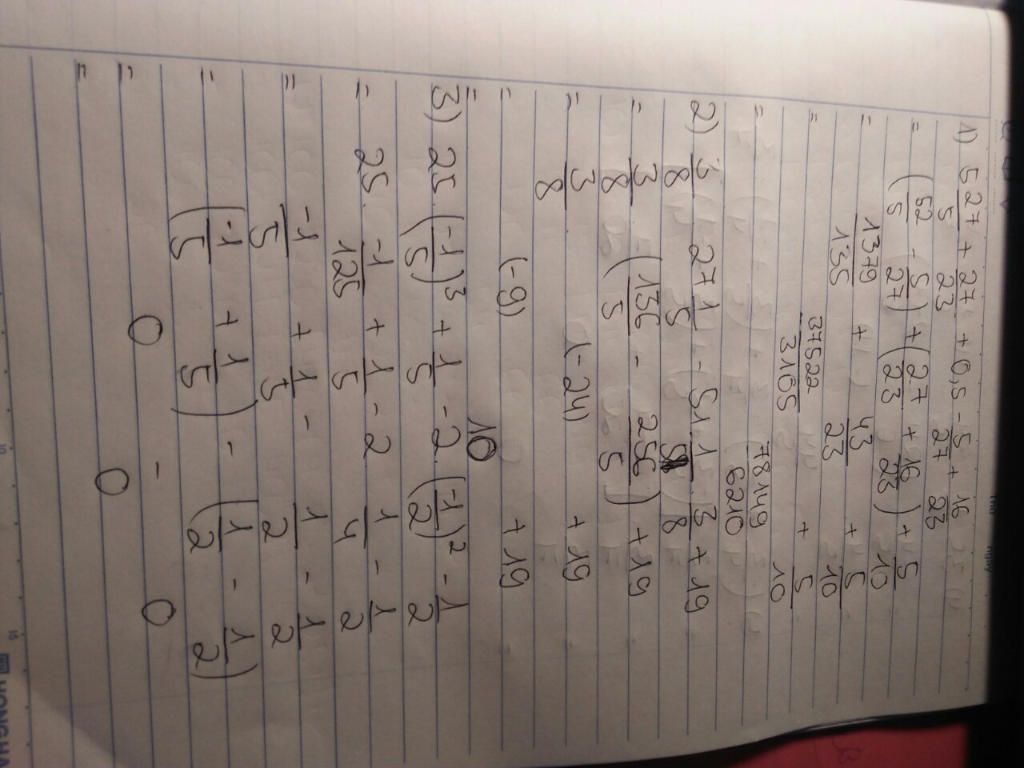 1) 527/5 + 27/23 + 0,5 - 5/27 + 16/23
= (52/5 - 5/27) + (27/23 + 16/23) + 5/10
= 1379/135 + 43/23 + 5/10
= 37522/3105 + 5/10
= 78149/6210
2) 3/8 27 1/5 - 51 1/5 3/8 + 19
= 3/8 (136/5 - 256/5) + 19
= 3/8 (-24) + 19
= (-9) + 19
= 10
3) 25.(-1/5)³ + 1/5 - 2.(-1/2)² - 1/2
= 25. -1/125 + 1/5 - 2 1/4 - 1/2
= -1/5 + 1/5 - 1/2 - 1/2
= (-1/5 + 1/5) - (1/2 - 1/2)
= 0 - 0
= 0
HONGHA